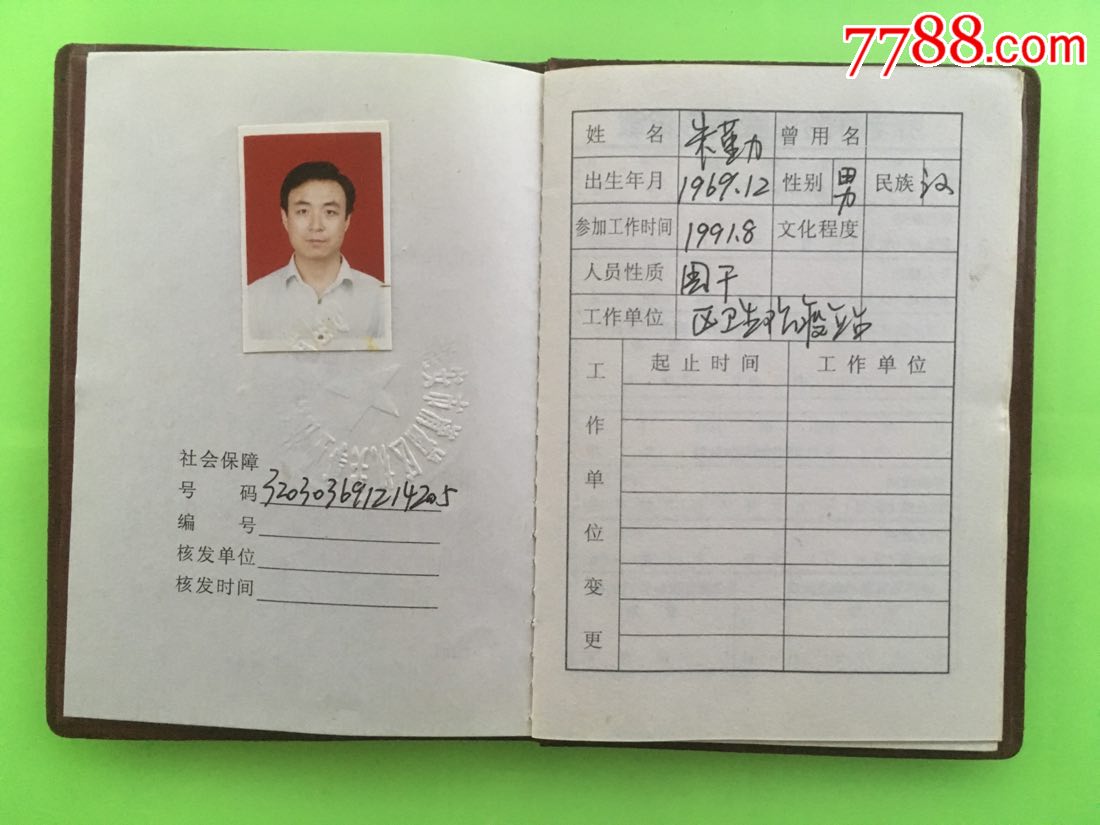 7788.com
社会保障
号 码 320303691214205
编 号
核发单位
核发时间
姓 名 朱勤力 曾用名
出生年月 1969.12 性别 男 民族 汉
参加工作时间 1991.8 文化程度
人员性质 国干
工作单位 区卫生防疫站
工作单位变更 起止时间 工作单位